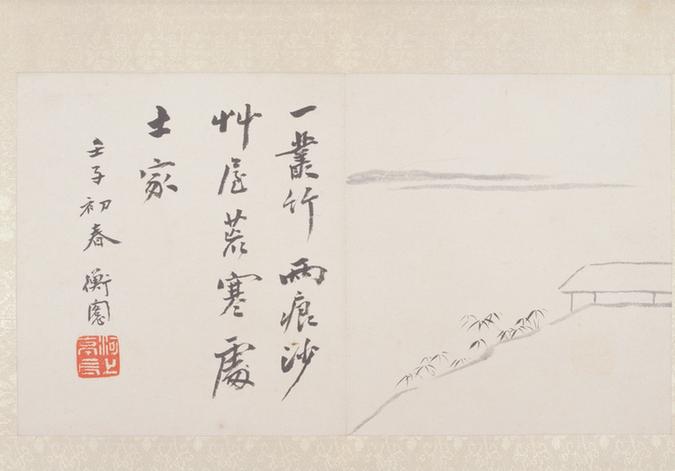 一叢竹兩痕沙
艸屋荒寒處
士家
壬子初春 衡
河上